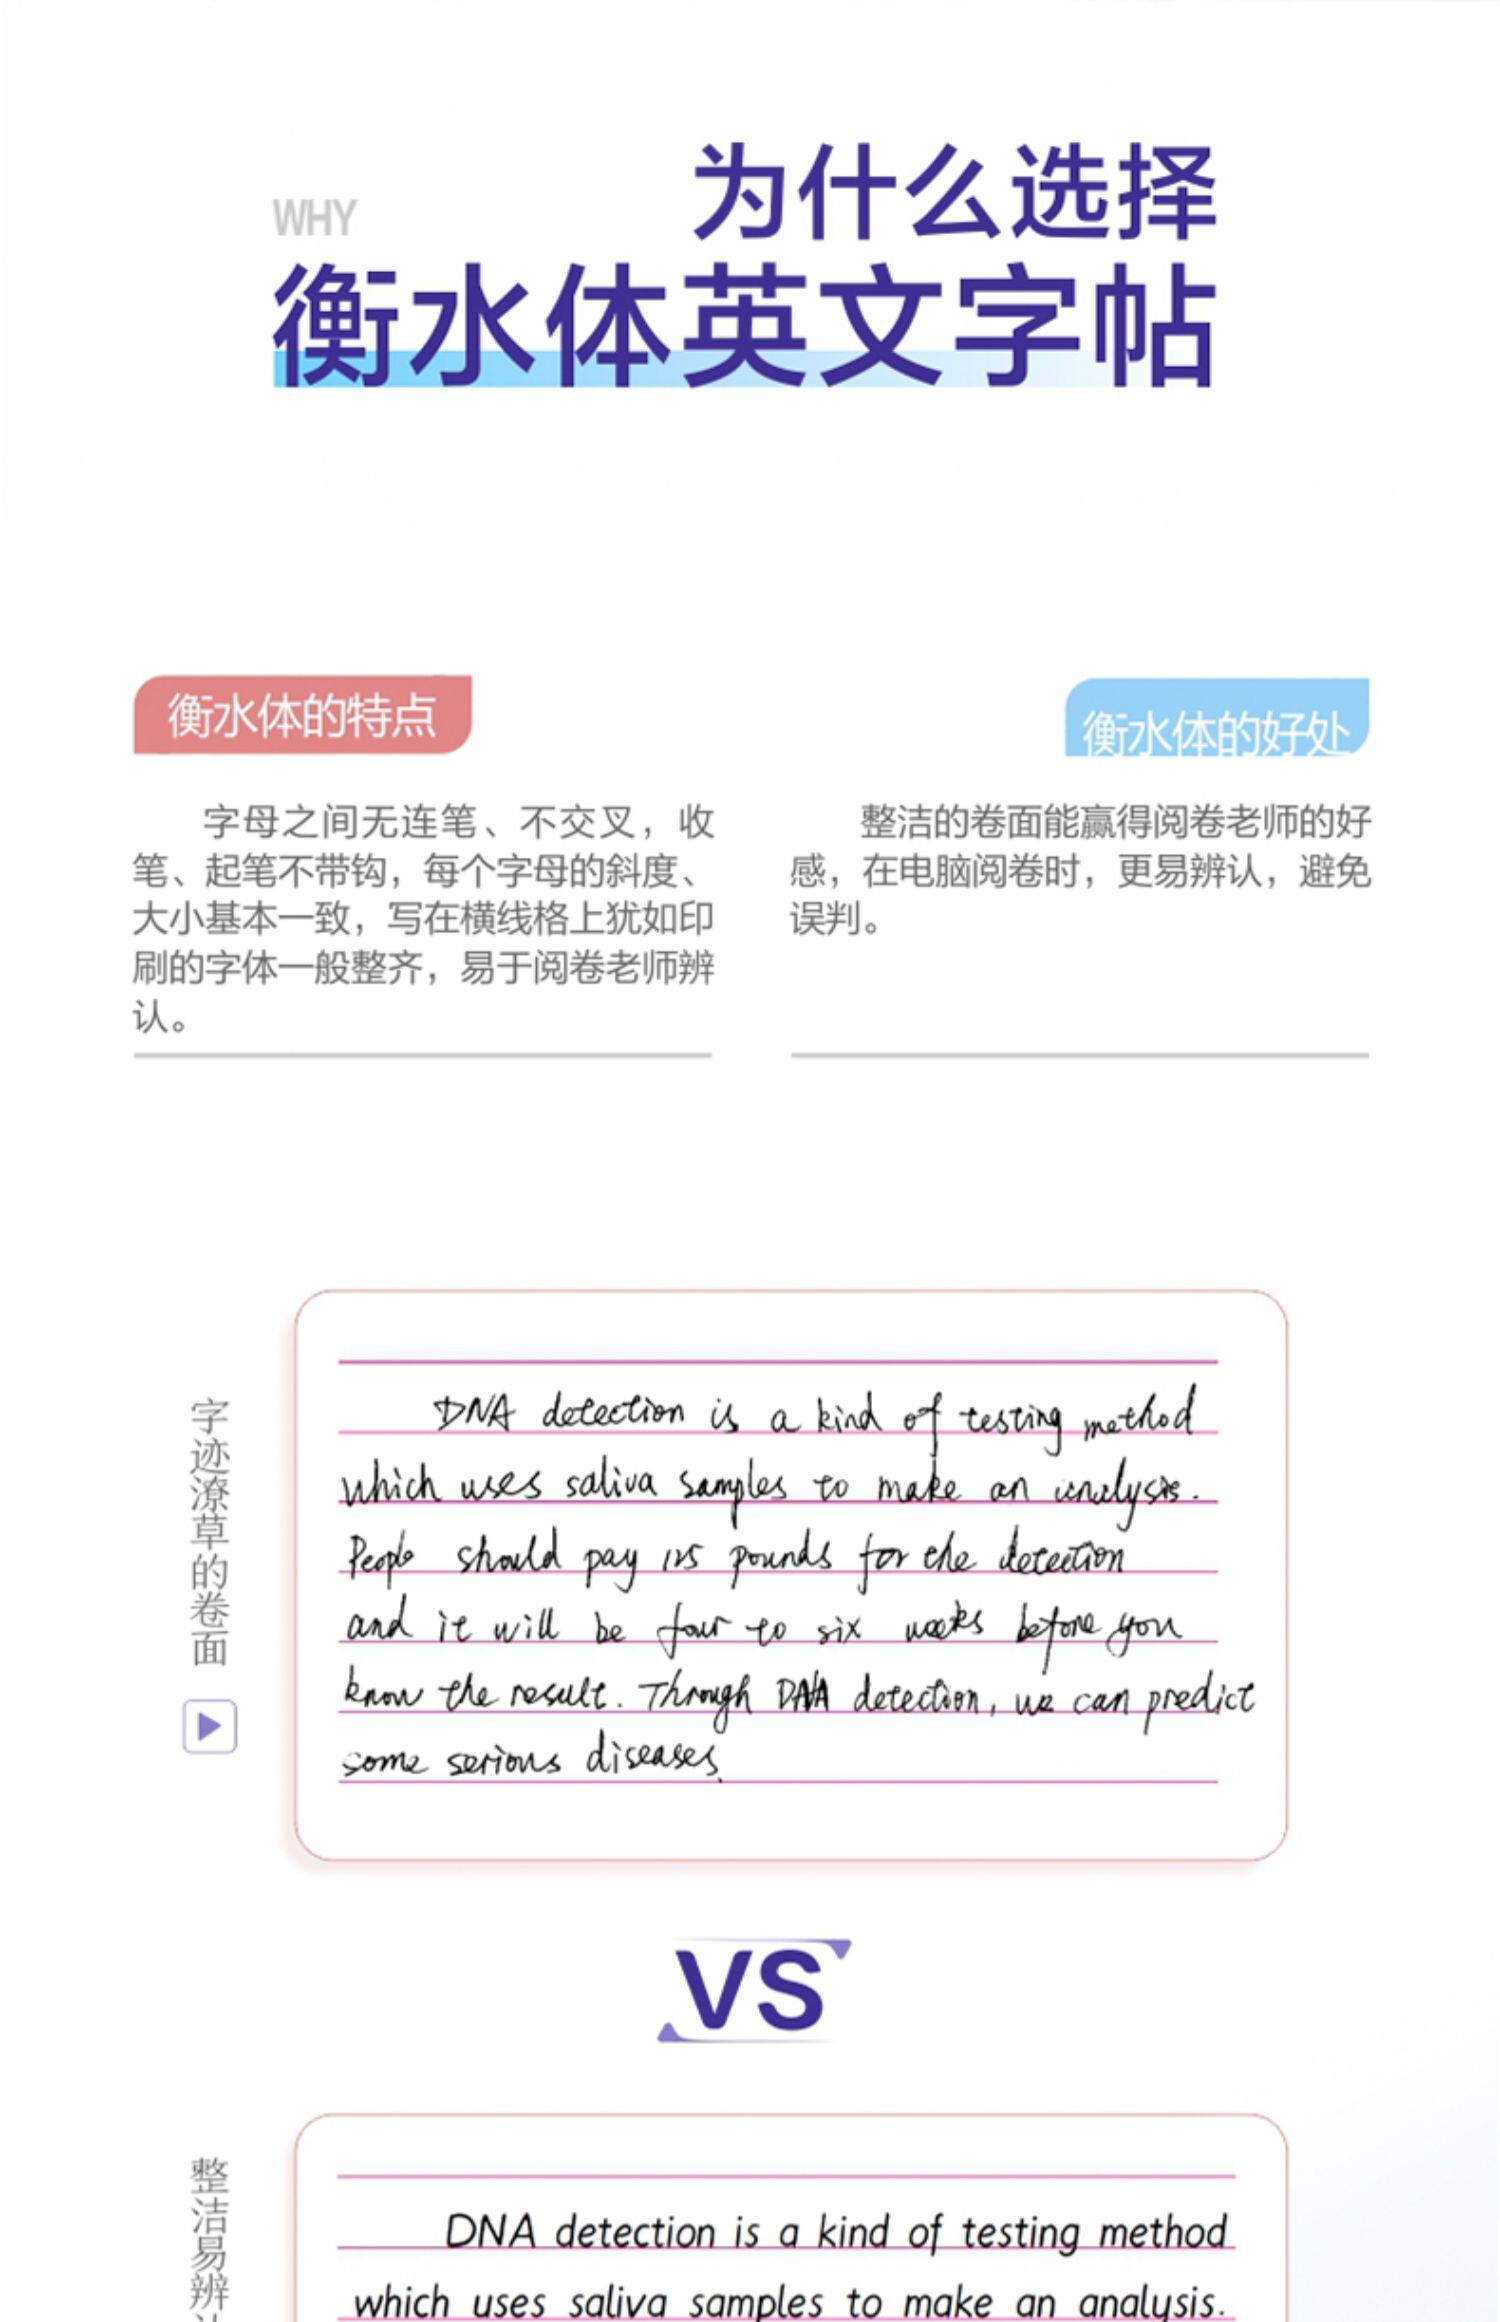 WHY
为什么选择
衡水体英文字帖
衡水体的特点
字母之间无连笔、不交叉，收
笔、起笔不带钩，每个字母的斜度、
大小基本一致，写在横线格上犹如印
刷的字体一般整齐，易于阅卷老师辨
认。
衡水体的好处
整洁的卷面能赢得阅卷老师的好
感，在电脑阅卷时，更易辨认，避免
误判。
字迹潦草的卷面
DNA detection is a kind of testing method
which uses saliva samples to make an analysis.
People should pay 125 pounds for the detection
and it will be four to six weeks before you
know the result. Through DNA detection, we can predict
some serious diseases.
VS
整洁易辨
DNA detection is a kind of testing method
which uses saliva samples to make an analysis.